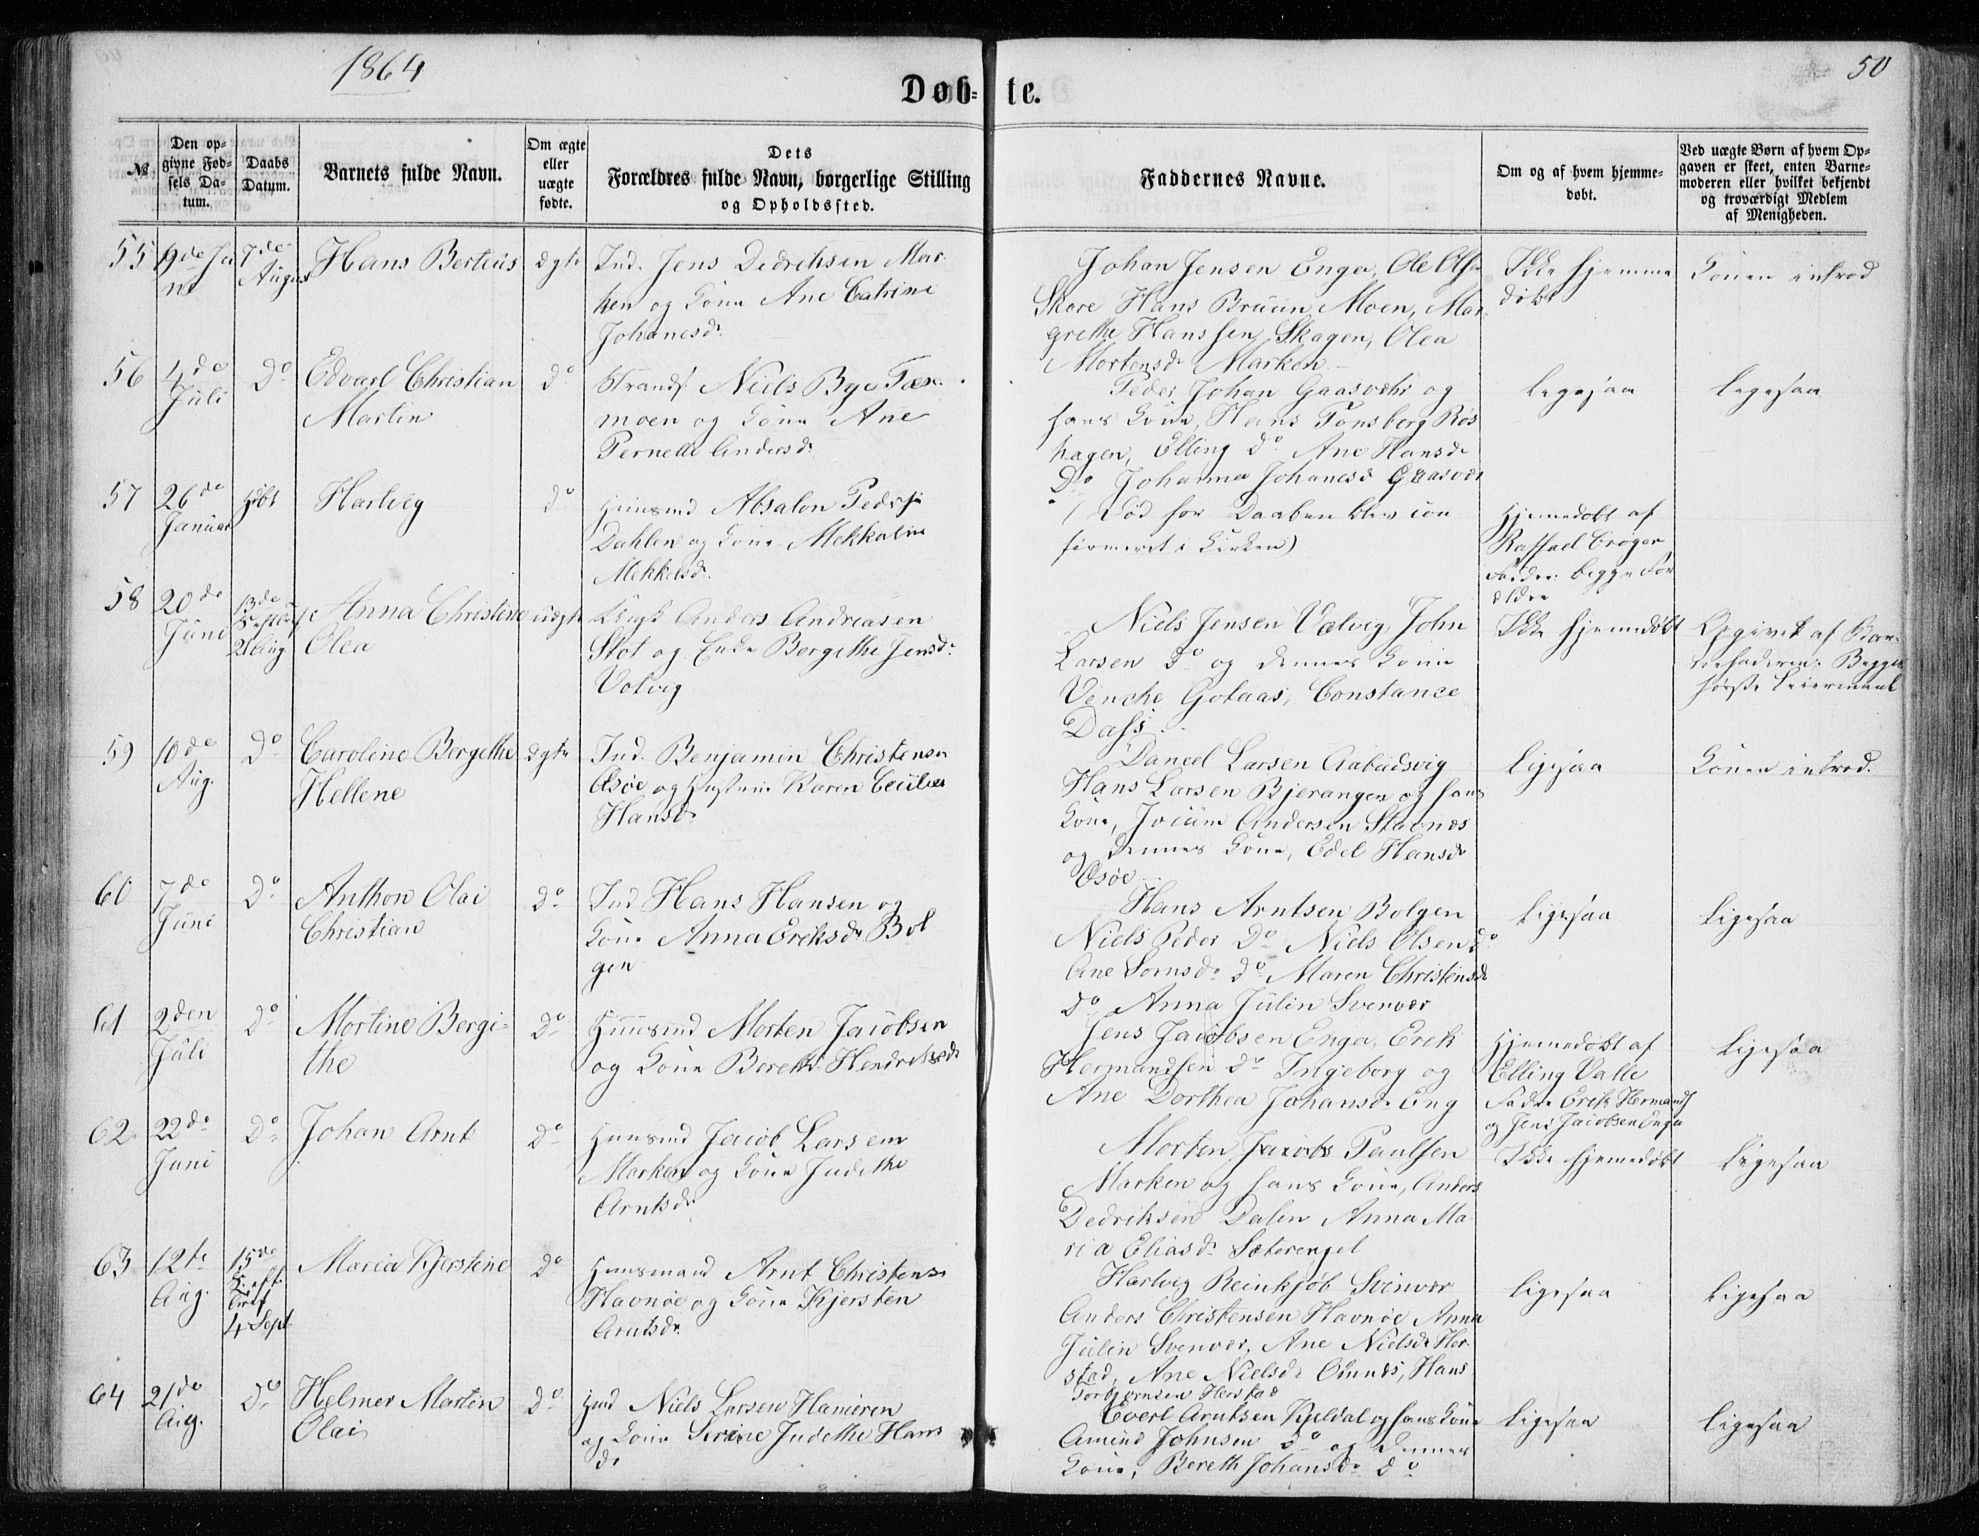 1864
50
Døb=te.
№
Den op-
givne Fød-
sels Da-
tum.
Daabs
Datum.
Barnets fulde Navn.
Om ægte
eller
uægte
fødte.
Dets
Forældres fulde Navn, borgerlige Stilling
og Opholdssted.
Faddernes Navne.
Om og af hvem hjemme-
døbt.
Ved uægte Børn af hvem Op-
gaven er skeet, enten Barne-
moderen eller hvilket bekjendt
og troværdigt Medlem
af Menigheden.
55
19de Ju
ni
7de
August
Hans Berteus
ægte
Ind. Jens Dedreksen Mar-
ken og Kone Ane Catrine
Johanesdr
Johan Jensen Enga, Ole Ols.
Skore Hans Bruun Moen, Mar-
grethe Hanssen Skagen, Olea
Mortensdr Marken
Ikke hjemme
døbt
Konen introd
56
4de
Juli
Do
Edvarl Christian
Martin
Do
Strands. Niels Bye
moen og Kone Ane
Pernelle Andersdr
Peder Johan Gaasvær og
hans Kone, Hans Tønsberg Røs
hagen, Elling Do Ane Hansdr
Do Johanna Johanesd Gaasvær
ligesaa
ligesaa
57
26de
Januar
Hartvig
do
Huusmd Absalon Peders.
Dahlen og Kone Mekkaline
Mekkelsdr
(Død før Daaben blev con
firmeret i Kirken)
Hjemedøbt af
Rassael Crøger
Faddere: begge For
ældre
58
20de
Juni
13de
21 Aug
Anna Christine
Olea
uægte
Ungk Anders Andreasen
Stot og Enke Bergithe Jensdr
Valvig
Niels Jensen Valvig John
Larsen Do og dennes Kone
Venche Gotaas, Constance
Dass
Ikke hjemedøbt
Opgivet af Bar-
nefaderen. Begges
første Leiermaal
59
10de
Aug.
Do
Caroline Bergethe
Hellene
ægte
Ind. Benjamin Christensen
Æsøe og Hustrue Karen Cecilie
Hansdr
Daneel Larsen Aabudsvig
Hans Larsen Bjerangen og hans
Kone, Jocum Andersen Støvnæs
og dennes Kone, Edel Hansdr
Æsøe
Ligesaa
Konen introd.
60
7de
Juni
Do
Anthon Olai
Christian
Do
Ind Hans Hansen og
Kone Anna Eriksdr Bol
gen
Hans Arntsen Bolgen
Niels Peder Do Niels Olsen do
Ane Sørnsdr do Maren Christensdr
Do Anna Julin Svenvær
Ligesaa
Ligesaa
61
2den
Juli
Do
Mortine Bergi-
the
Do
Huusmd Morten Jacobsen
og Kone Bereth Hendreksdr
Jens Jacobsen Enga, Erek
Hermandsen Do Ingeborg og
Ane Dorthea Johansdr Eng
Hjemedøbt af
Elling Valle
Faddere Erik Hermands
og Jens Jacobsen Enga
Ligesaa
62
22de
Juni
Do
Johan Arnt
Do
Huusmd Jacob Larsen
Marken og Kone Judithe
Arntsdr
Morten Jacob Paulsen
Marken og hans Kone, Anders
Dedreksen Dalen Anna Ma-
ria Eliasdr Sæterengel
Ikke hjemedøbt
Ligesaa
63
12te
Aug.
15de
4 Sept
Maria Kjerstine
Do
Huusmand Arnt Christens.
Havnøe og Kone Kjersten
Arntsdr
Hartvig Reinkjøb Svinvær
Anders Christensen Havnøe Anna
Julin Svenvær, Ane Nielsdr Her-
stad, Ane Nielsdr Omnæs, Hans
Torbjørnsen Herstad
Ligesaa
Ligesaa
64
21de
Aug.
Do
Helmer Martin
Olai
Do
Hmd Niels Larsen Hameren
og Kone Serene Judethe Hans
dr
Evert Arntsen Kjeldal og hans Kone
Amund Johnsen Do og dennes
Kone, Bereth Johansdr Do
Ligesaa
Ligesaa